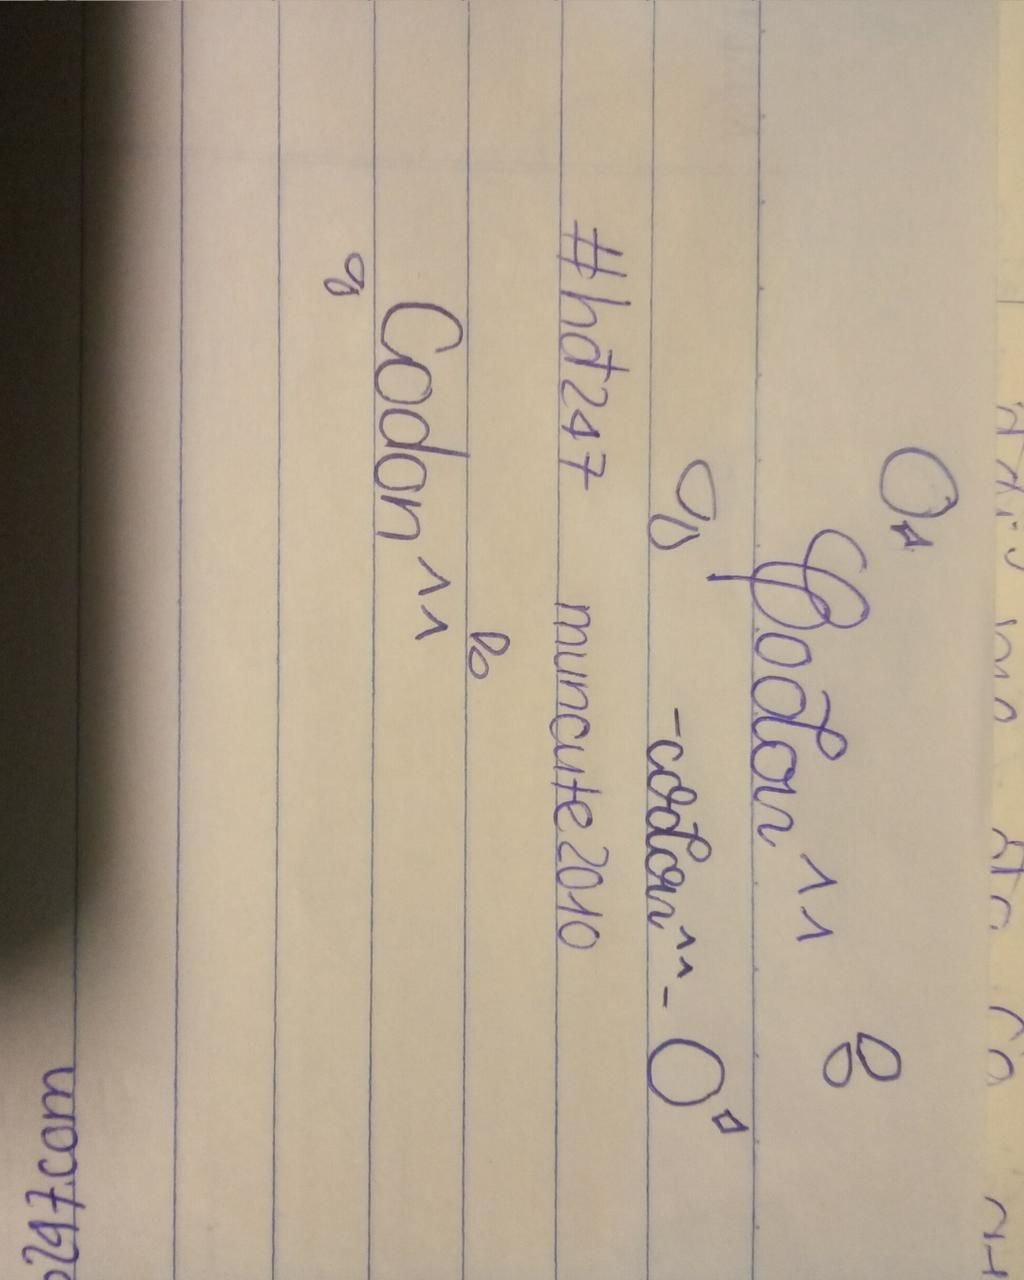 Codon^11
-codon^11-
#hđ247 muncute2010
Codon^11
247.com